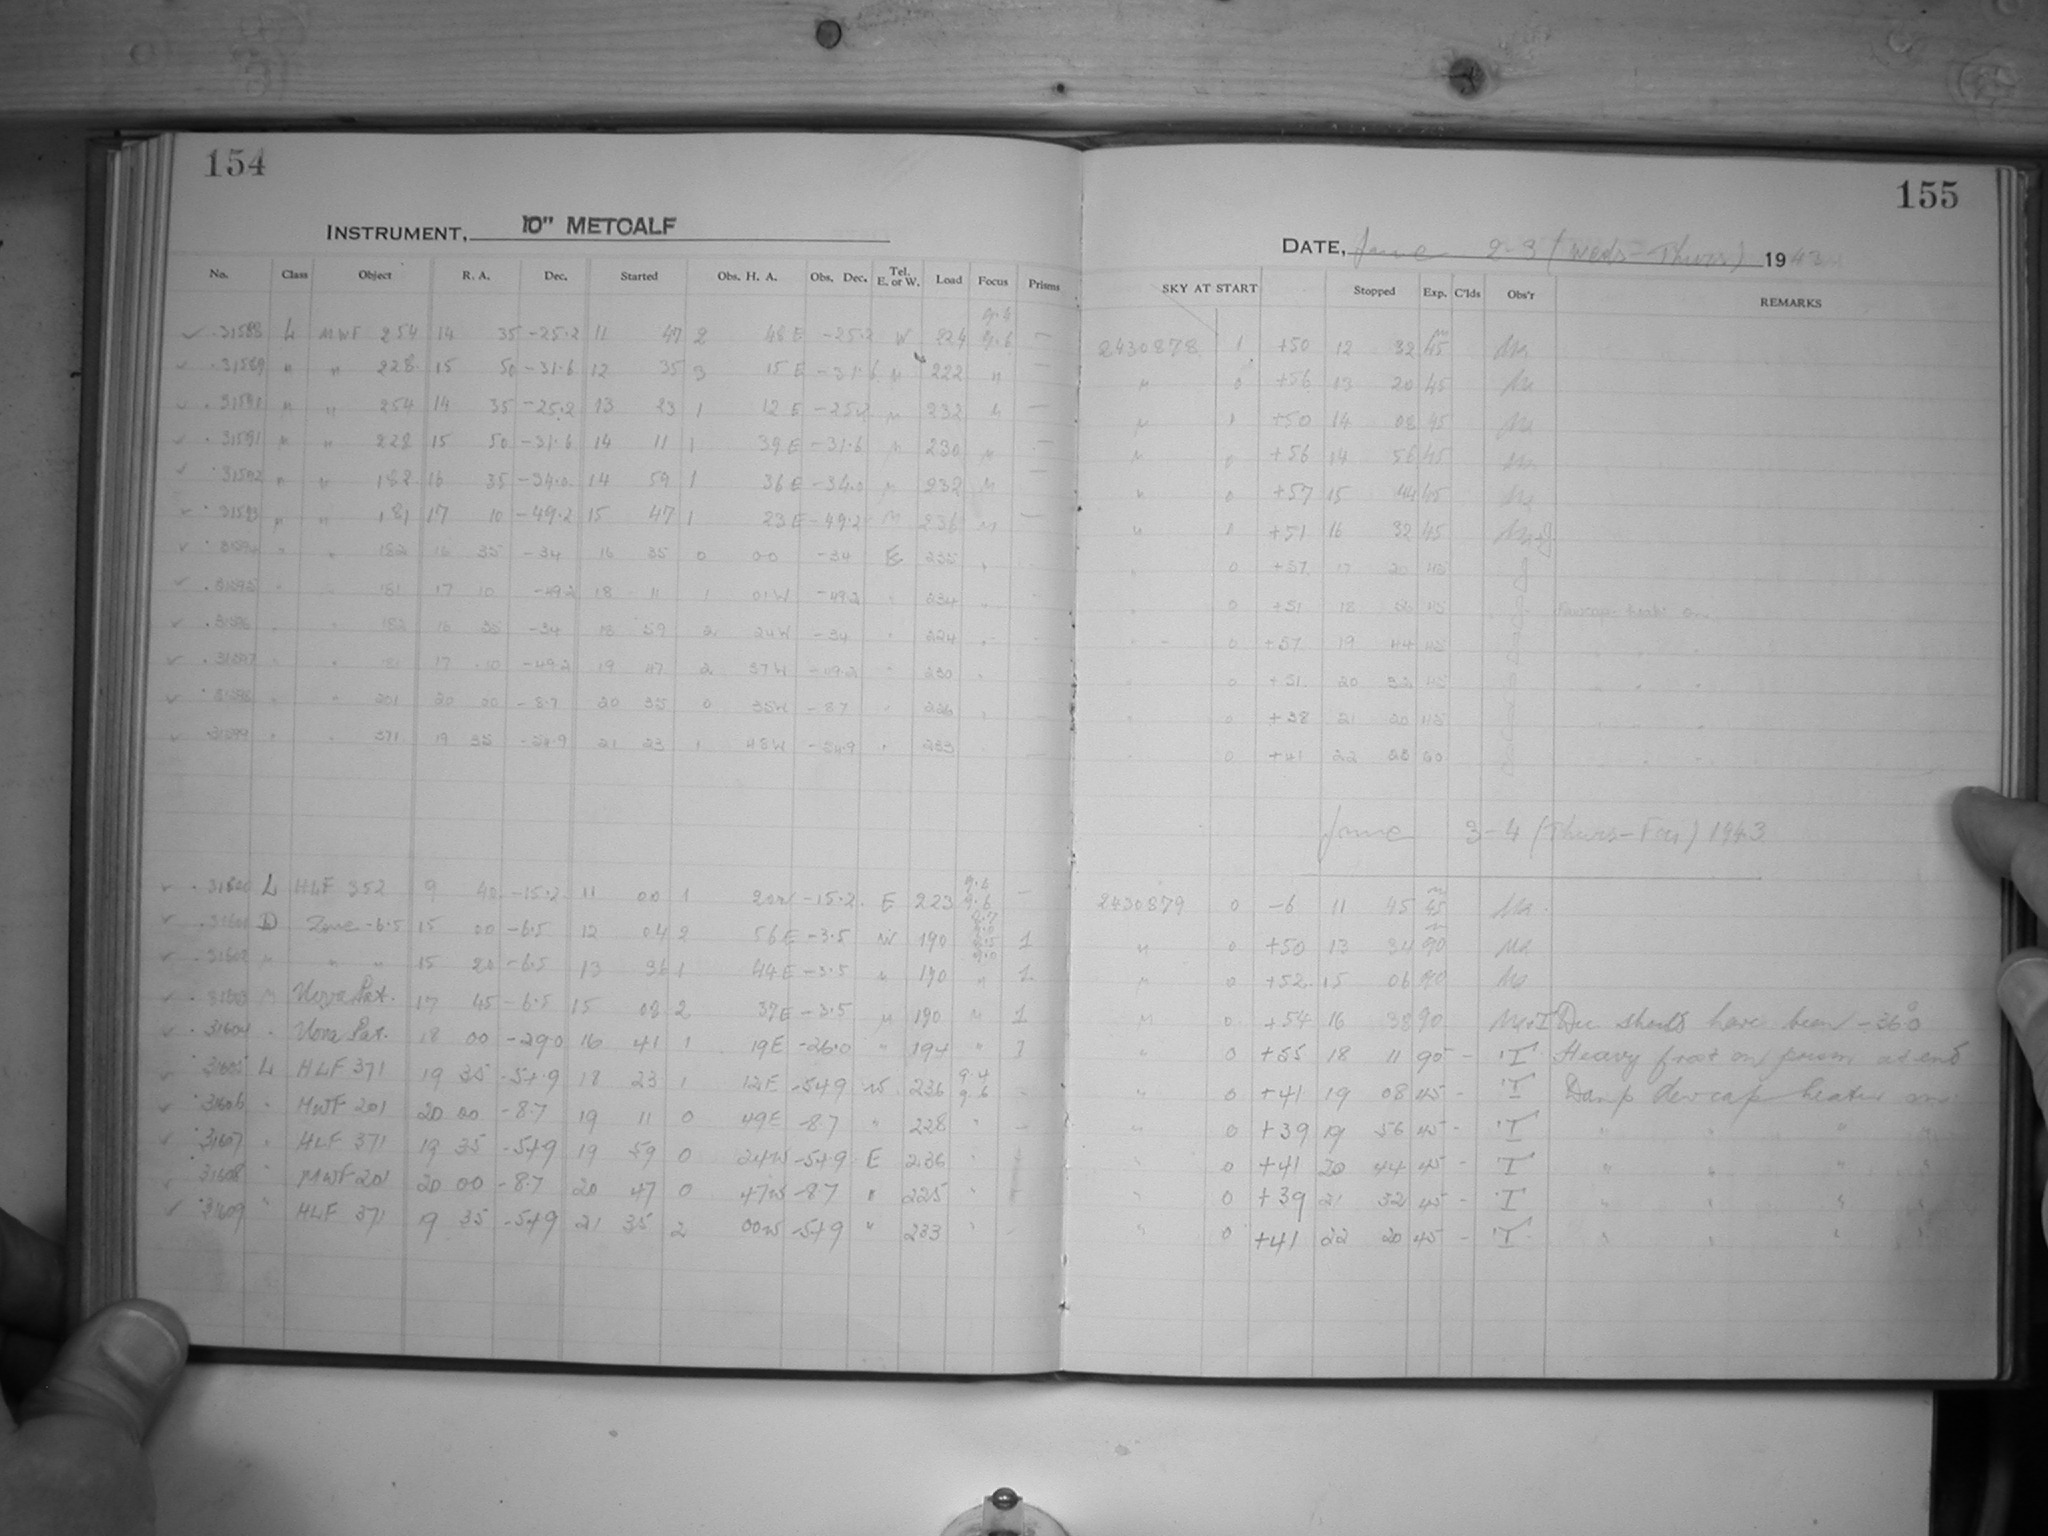 154
155
INSTRUMENT, 10" METCALF
DATE, June 2-3 (Weds-Thurs) 1943
No. Class Object R. A. Dec. Started Obs. H. A. Obs. Dec. Tel. E. or W. Load Focus Prisms SKY AT START Stopped Exp. C'lds Obs'r REMARKS
31588 L MWF 254 14 35 -25.2 11 47 2 48 E -25.2 W 224 9.4 9.6 — 2430878 1 +50 12 32 45
31589 " " 228 15 50 -31.6 12 35 3 15 E -31.6 " 222 " — " 0 +56 13 20 45
" " 254 14 35 -25.2 13 23 1 12 E -25.2 " 232 " — " +50 14 08 45
31591 " " 228 15 50 -31.6 14 11 1 39 E -31.6 " 230 " — " 0 +56 14 56 45
31592 " " 182 16 35 -34.0 14 59 1 36 E -34.0 " 232 " — " 0 +57 15 44 45
31593 " " 181 17 10 -49.2 15 47 1 23 E -49.2 " 236 " — " +51 16 32 45
" " 182 16 35 -34 16 35 0 00 -34 E 235 " 0 +57 17 20 45
" " 181 17 10 -49.2 18 11 1 01 W -49.2 " 234 " 0 +51 18 45
" " 182 16 35 -34 18 59 2 24 W -34 " 224 " 0 +57 19 44 45
31597 " " 181 17 10 -49.2 19 47 2 37 W -49.2 " 230 " 0 +51 20 32 45
" " 201 20 00 -8.7 20 35 0 35 W -8.7 " " 0 +38 21 20 45
31599 " " 371 19 35 -54.9 21 23 1 48 W -54.9 " 233 0 +41 22 23 60
June 3-4 (Thurs-Fri) 1943
31600 L HLF 352 9 40 -15.2 11 00 1 20 W -15.2 E 223 9.4 9.6 — 2430879 0 -6 11 45 45
31601 Zone -6.5 15 00 -6.5 12 04 2 56 E -3.5 W 190 1 " 0 +50 13 34 90
31602 " " " 15 20 -6.5 13 36 1 44 E -3.5 " 190 " 1 " 0 +52 15 06 90
31603 " Nova Pat. 17 45 -6.5 15 08 2 37 E -3.5 " 190 " 1 " 0 +54 16 38 90 Dec should have been -36°0
31604 " Nova Pat. 18 00 -29.0 16 41 1 19 E -26.0 " 194 " 1 " 0 +55 18 11 90 - T Heavy frost on prism at end
31605 L HLF 371 19 35 -54.9 18 23 1 12 E -54.9 W 236 9.4 9.6 - " 0 +41 19 08 45 - T Damp dewcap heater on
31606 " MWF 201 20 00 -8.7 19 11 0 49 E -8.7 " 228 " — " 0 +39 19 56 45 - T " " " "
31607 " HLF 371 19 35 -54.9 19 59 0 24 W -54.9 E 236 " " 0 +41 20 44 45 - T " " " "
31608 " MWF 201 20 00 -8.7 20 47 0 47 W -8.7 " 225 " " 0 +39 21 32 45 - T " " " "
31609 " HLF 371 19 35 -54.9 21 35 2 00 W -54.9 " 233 " - " 0 +41 22 20 45 - T " " " "